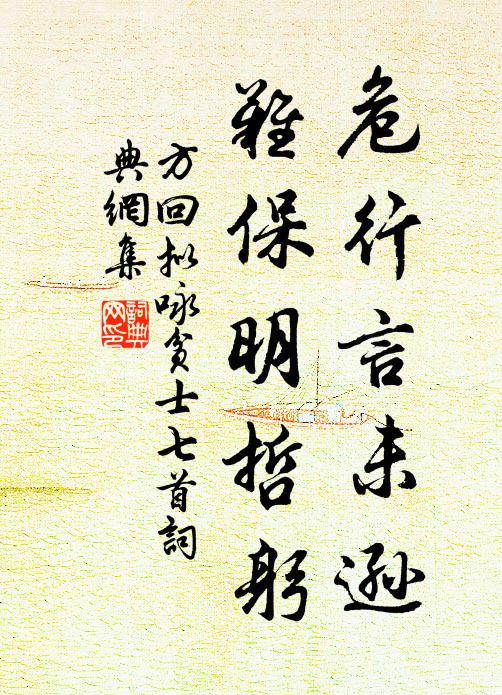 危行言未遜
難保明哲躬
方回拟咏貧士七首詞
典網集
詞典
网印